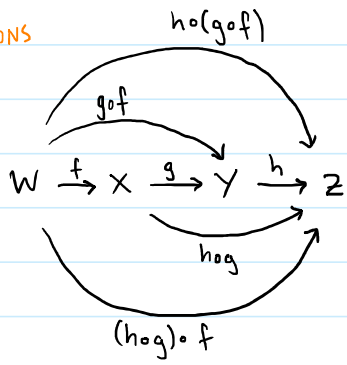 ONS
h∘(g∘f)
g∘f
W f→ X g→ Y h→ Z
h∘g
(h∘g)∘f